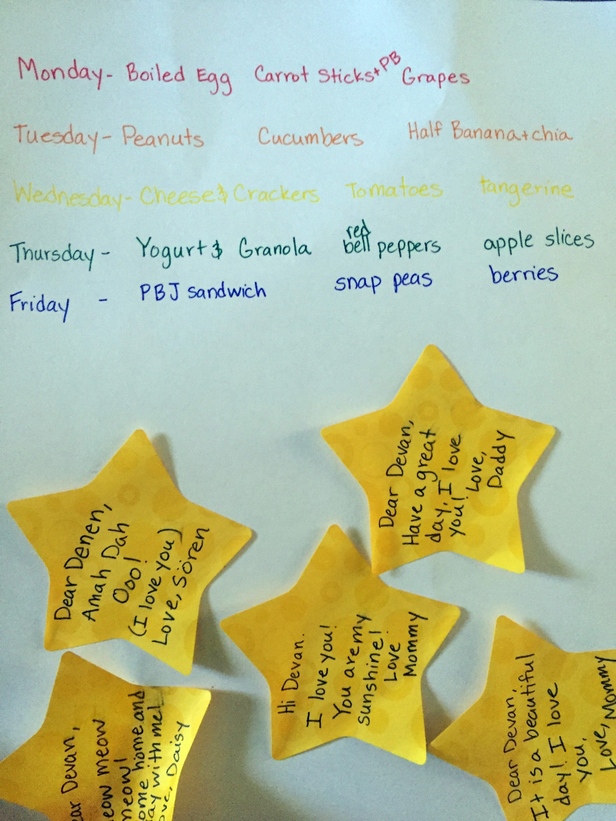 Monday- Boiled Egg Carrot Sticks+PB Grapes
Tuesday- Peanuts Cucumbers Half Banana+chia
Wednesday- Cheese & Crackers Tomatoes tangerine
Thursday - Yogurt & Granola red bell peppers apple slices
Friday - PBJ sandwich snap peas berries
Dear Devan,
Have a great
day, I love
you!
Love,
Daddy
Dear Denen,
Amah Dah
Ooo!
(I love you)
Love, Sören
Hi Devan.
I love you!
You are my
sunshine!
Love
Mommy
Devan,
meow
meow!
home and
with me!
Daisy
Dear Devan,
It is a beautiful
day! I love
you,
Love, Mommy